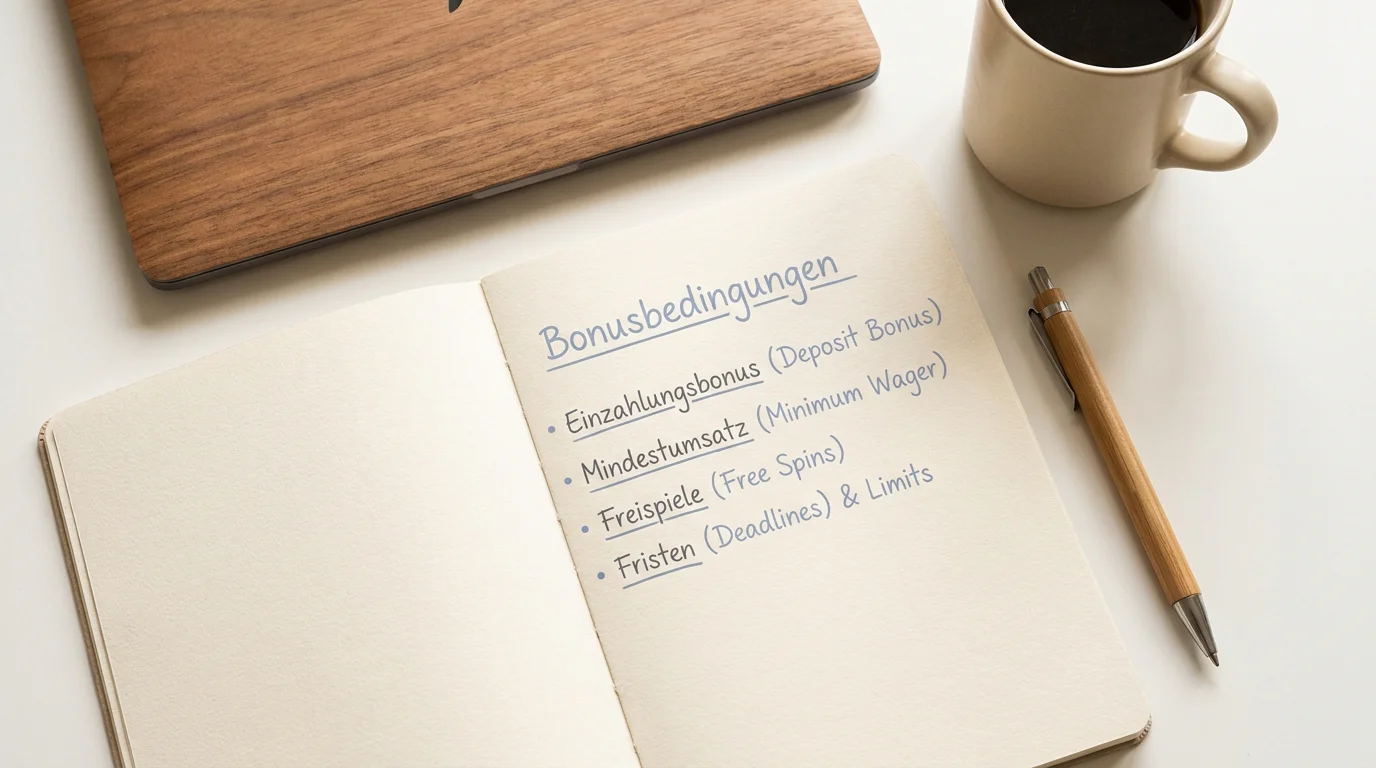 Bonusbedingungen
• Einzahlungsbonus (Deposit Bonus)
• Mindestumsatz (Minimum Wager)
• Freispiele (Free Spins)
• Fristen (Deadlines) & Limits